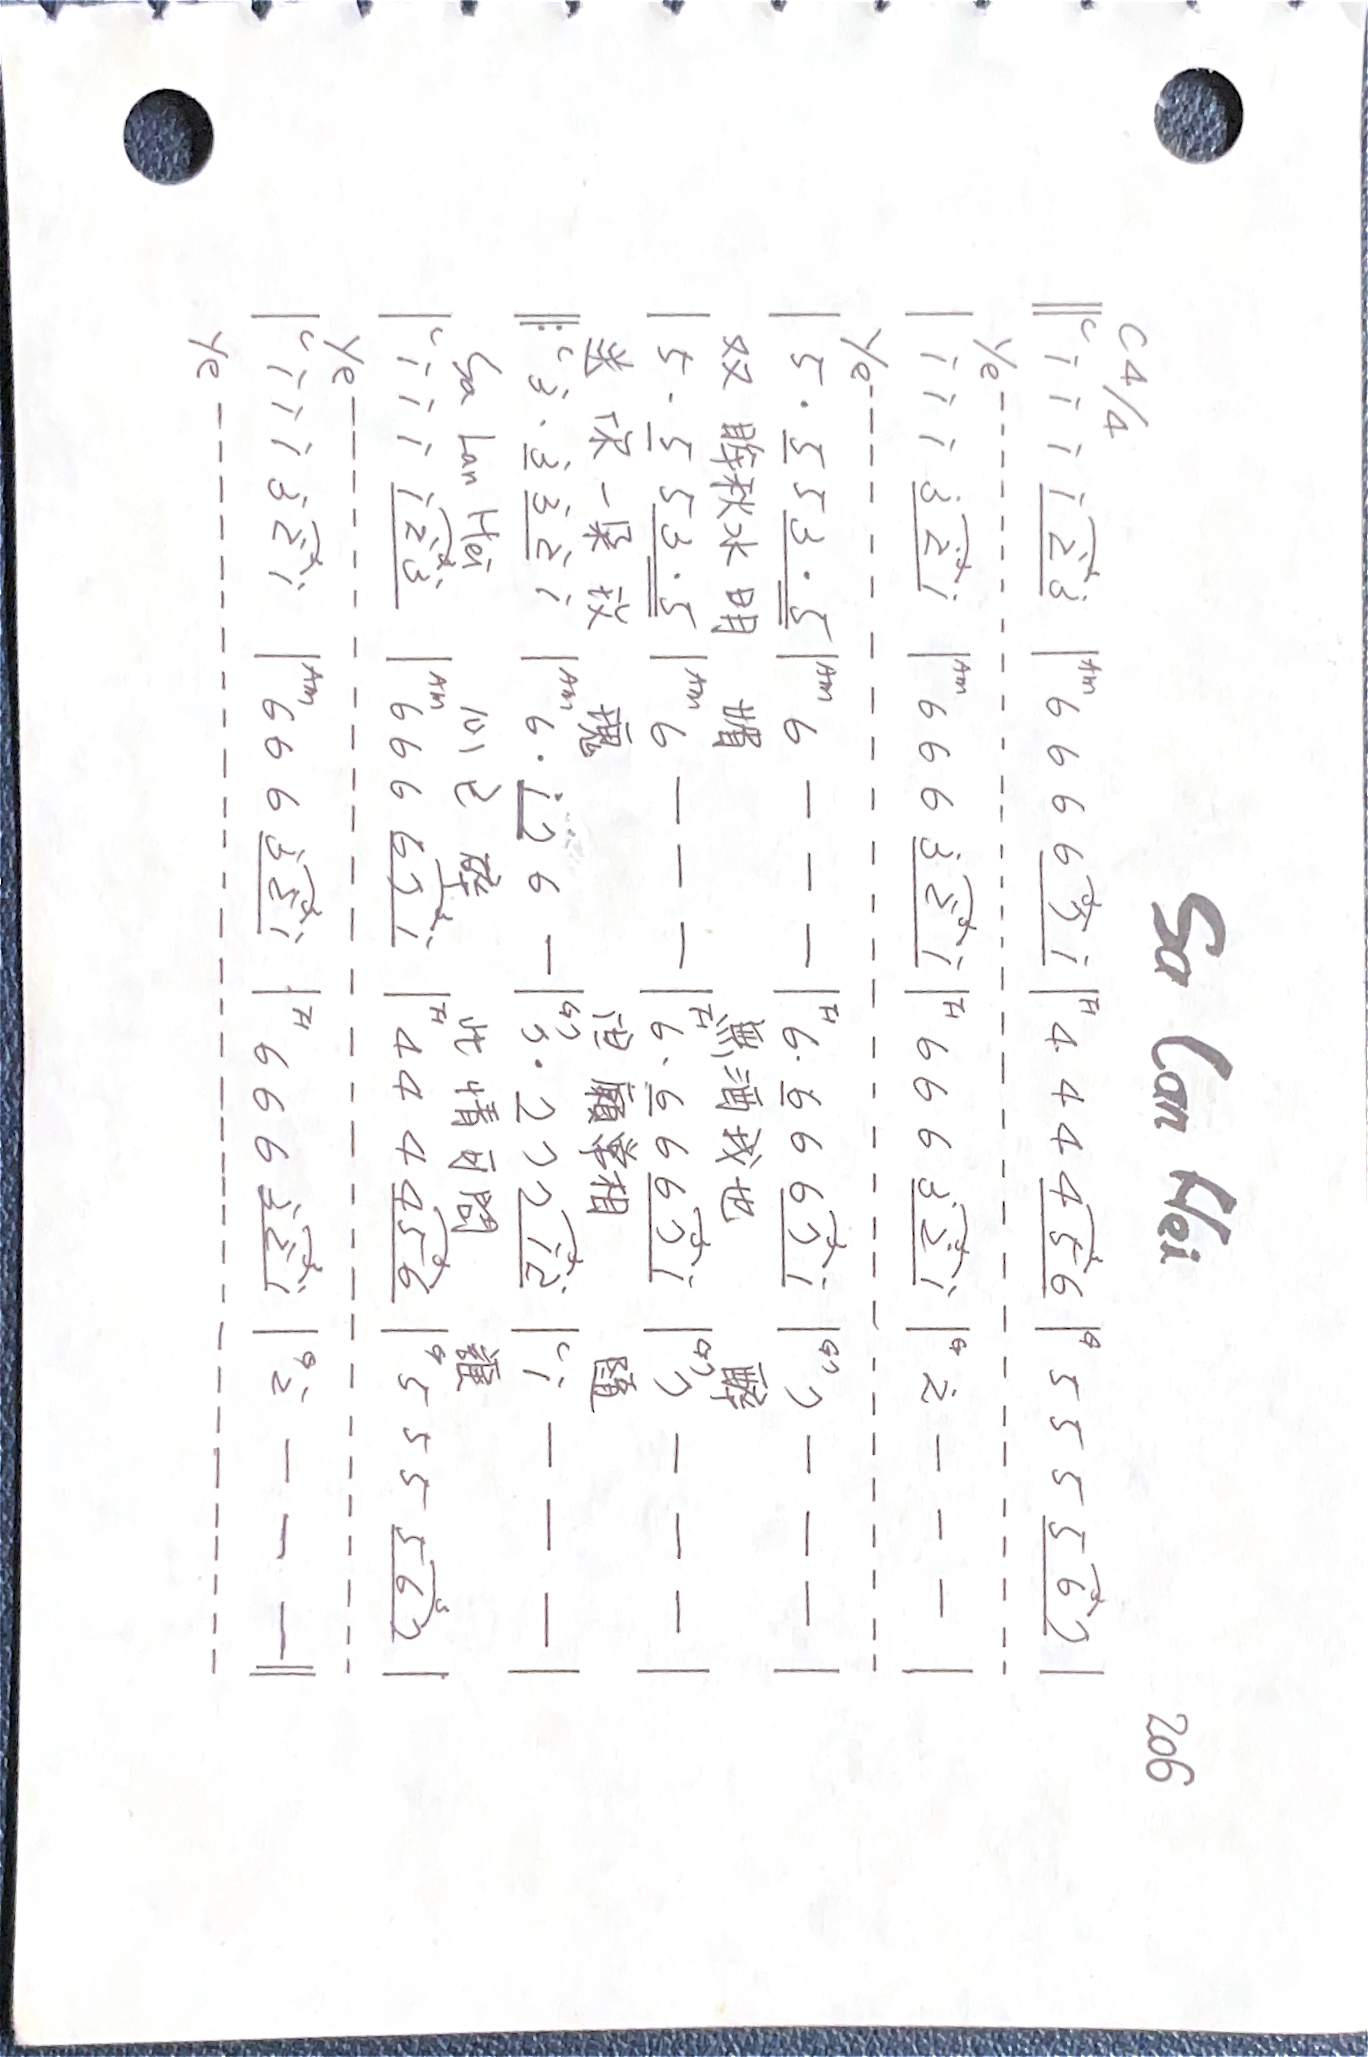 Sa Lan Hei
206
C 4/4
‖C i i i i 2̇ 3̇ |Am 6 6 6 6 7 i |F 4 4 4 4 5 6 |G 5 5 5 5 6 7 |
Ye--------------------------------
| i i i 3̇ 2̇ i |Am 6 6 6 3̇ 2̇ i |F 6 6 6 3̇ 2̇ i |G 2̇ — — — |
Ye--------------------------------
| 5 · 5 5 3 · 5 |Am 6 — — — |F 6 · 6 6 6 7 i |G7 7 — — — |
双眸秋水明 媚 無酒我也 醉
| 5 · 5 5 3 · 5 |Am 6 — — — |F 6 · 6 6 6 7 i |G7 7 — — — |
送你一朵玫 瑰 但願常相 隨
‖:C 3̇ · 3̇ 3̇ 2̇ i |Am 6 · i 7 6 — |G7 7 · 7 7 7 i 2̇ |C i — — — |
Sa Lan Hei 心已碎 此情可問 誰
|C i i i i 2̇ 3̇ |Am 6 6 6 6 7 i |F 4 4 4 4 5 6 |G 5 5 5 5 6 7 |
Ye--------------------------------
|C i i i 3̇ 2̇ i |Am 6 6 6 3̇ 2̇ i |F 6 6 6 3̇ 2̇ i |G 2̇ — — — ‖
Ye--------------------------------